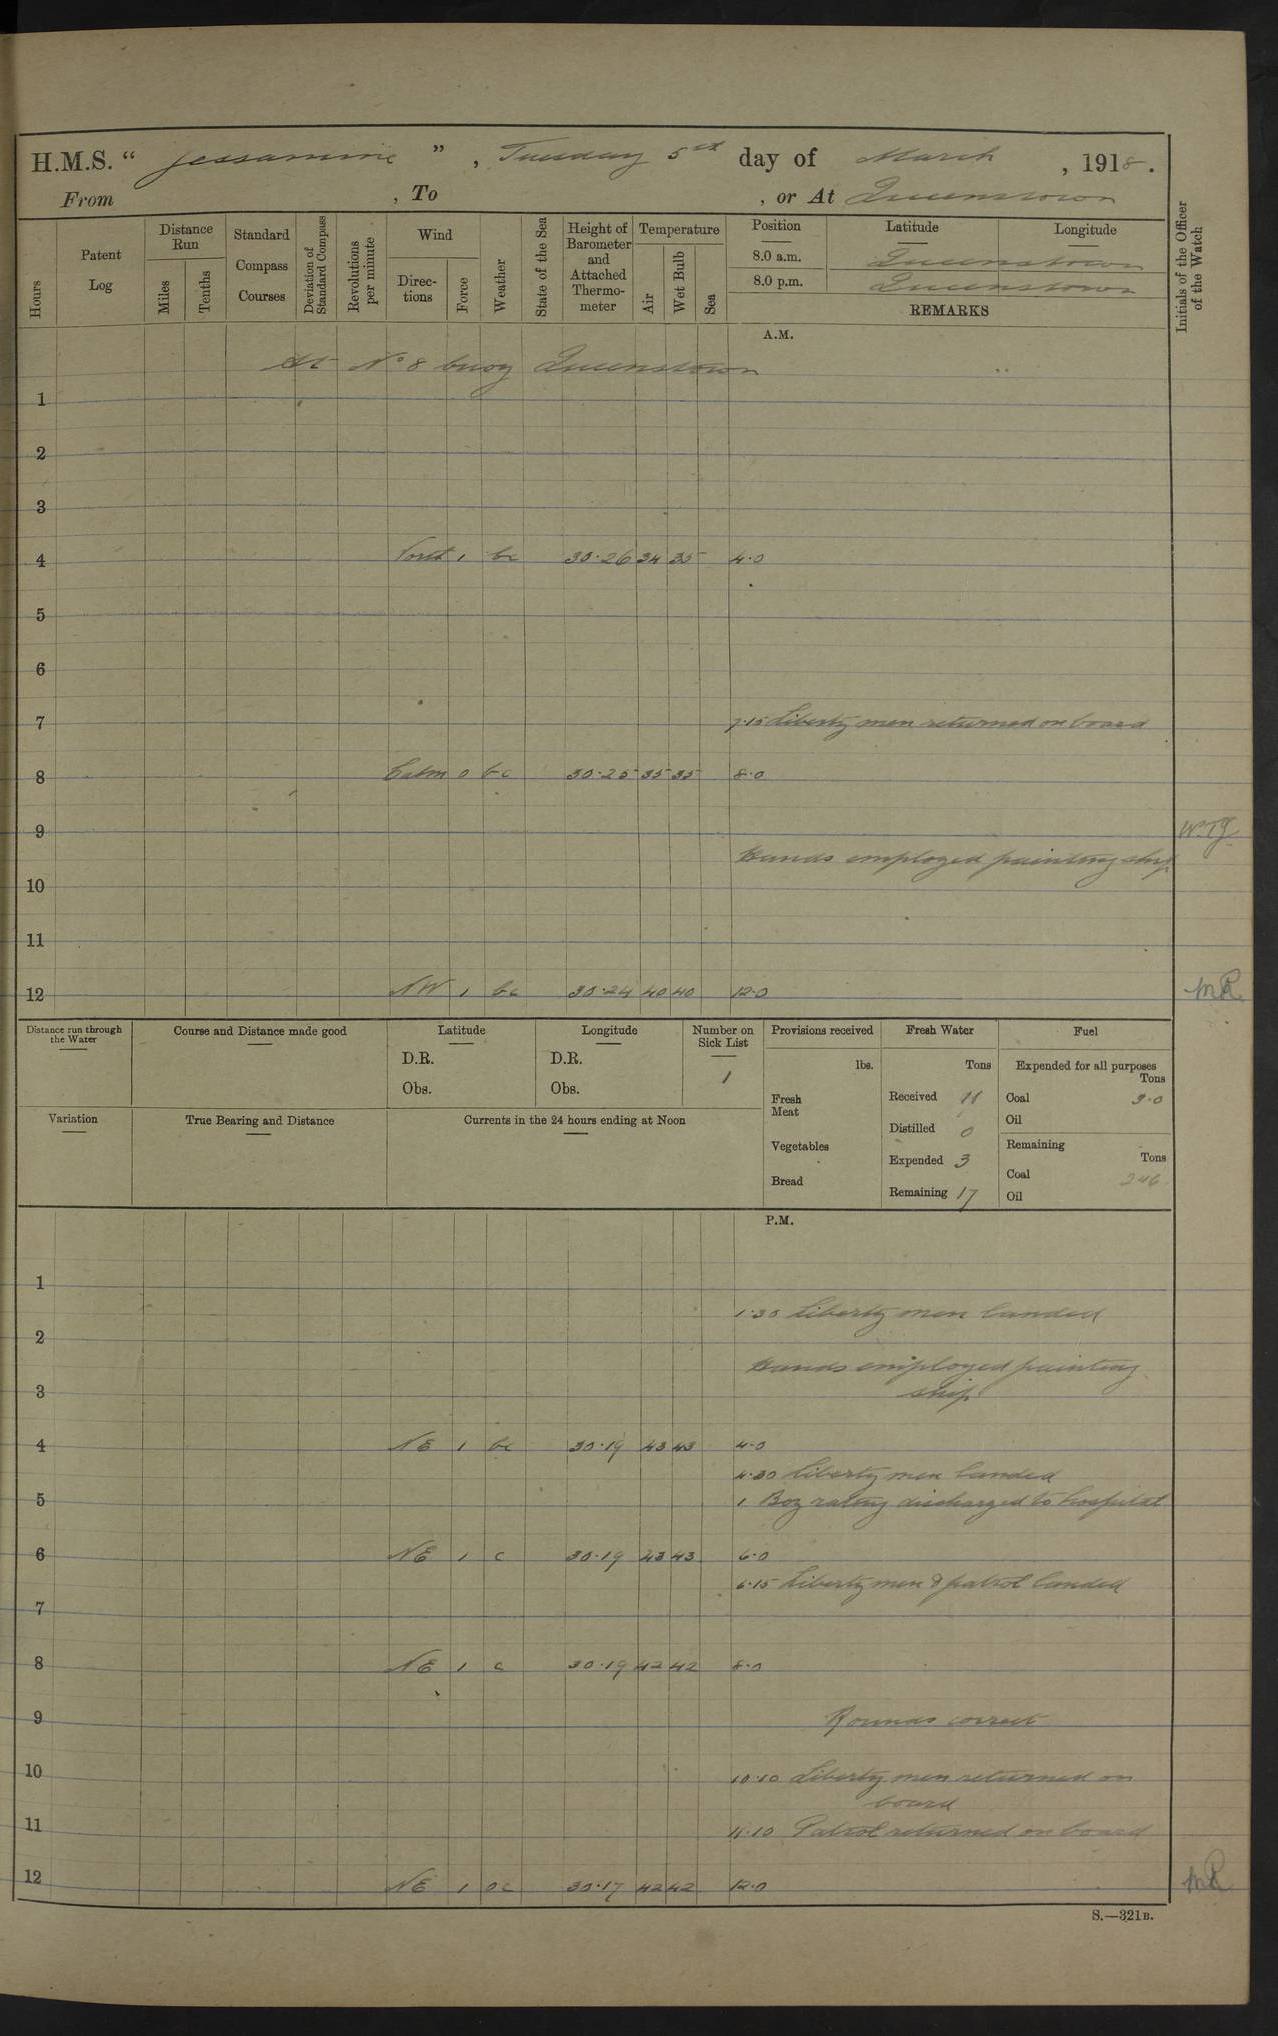 H.M.S. "Jessamine", Tuesday 5th day of March, 1918.
From , To , or At Queenstown
Hours
Patent Log
Distance Run
Miles
Tenths
Standard Compass Courses
Deviation of Standard Compass
Revolutions per minute
Wind
Directions
Force
Weather
State of the Sea
Height of Barometer and Attached Thermometer
Temperature
Air
Wet Bulb
Sea
Position Latitude Longitude
8.0 a.m. Queenstown
8.0 p.m. Queenstown
REMARKS
Initials of the Officer of the Watch
A.M.
At No 8 buoy Queenstown
1
2
3
4 North 1 bc 30·26 34 35 4·0
5
6
7 7·15 Liberty men returned on board
8 Calm 0 bc 30·25 35 35 8·0
9
Hands employed painting ship
10
11
12 NW 1 bc 30·24 40 40 12·0
Distance run through the Water
Course and Distance made good
Latitude
D.R.
Obs.
Longitude
D.R.
Obs.
Number on Sick List
1
Provisions received
lbs.
Fresh Meat
Vegetables
Bread
Fresh Water
Tons
Received 11
Distilled 0
Expended 3
Remaining 17
Fuel
Expended for all purposes
Tons
Coal 3·0
Oil
Remaining
Tons
Coal 246
Oil
Variation
True Bearing and Distance
Currents in the 24 hours ending at Noon
P.M.
1
1·30 Liberty men landed
2
Hands employed painting
3 ship
4 NE 1 bc 30·19 43 43 4·0
4·30 Liberty men landed
5 1 Boy rating discharged to hospital
6 NE 1 c 30·19 43 43 6·0
6·15 Liberty men & patrol landed
7
8 NE 1 c 30·19 42 42 8·0
9 Rounds correct
10 10·10 Liberty men returned on
board
11 11·10 Patrol returned on board
12 NE 1 oc 30·17 42 42 12·0
S.—321B.